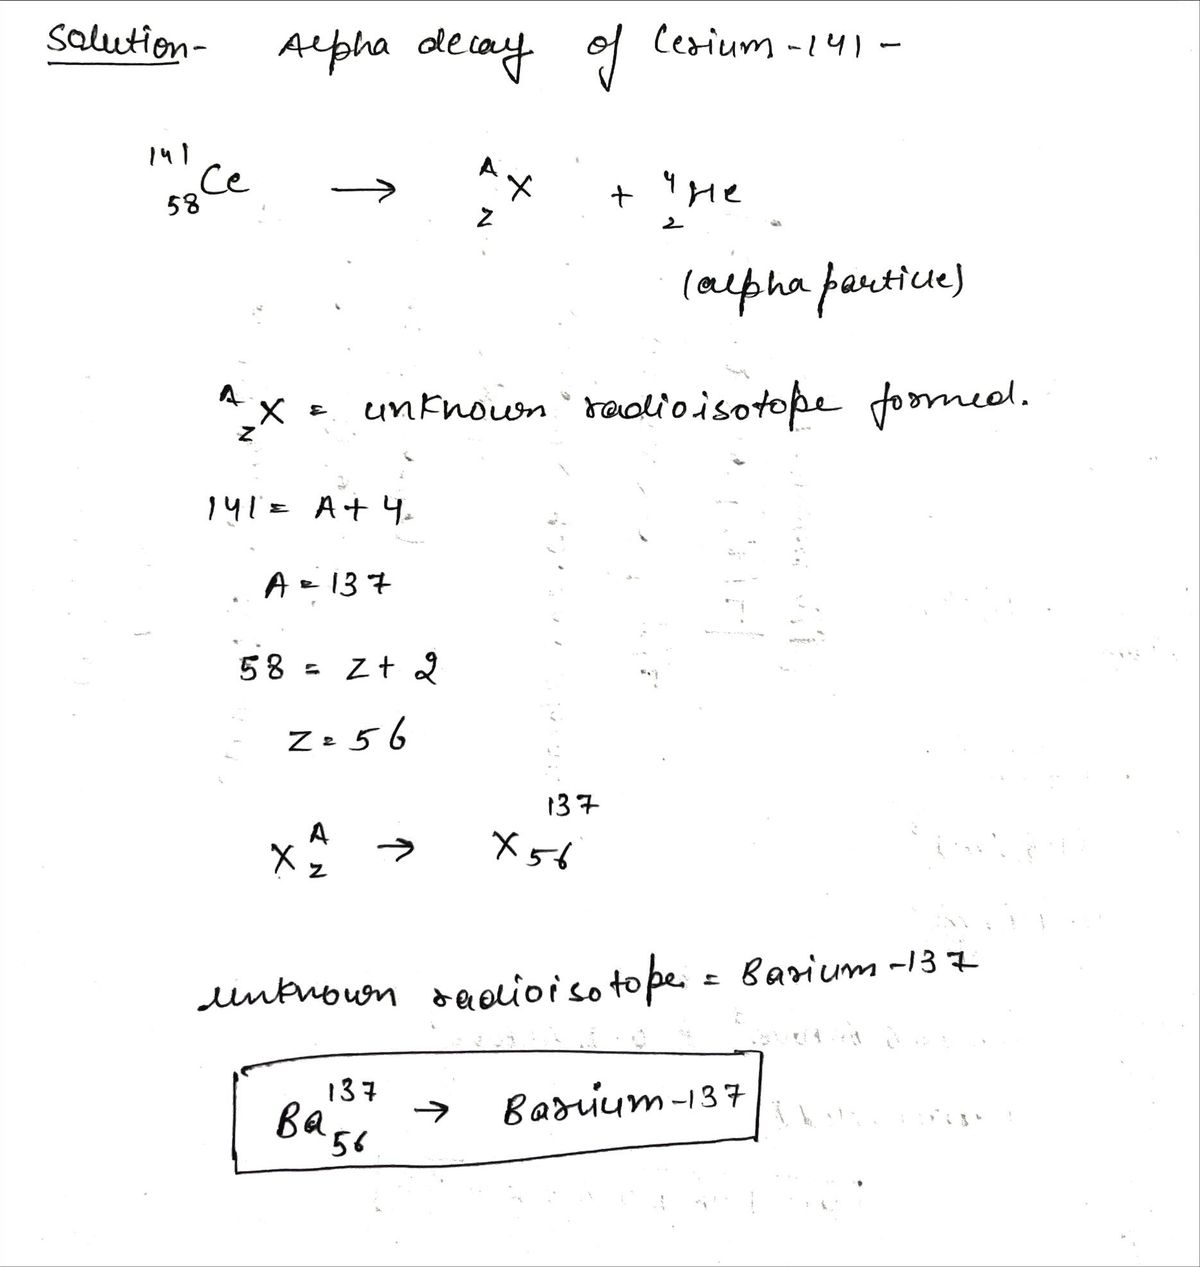 Solution- Alpha decay of Cerium-141-
¹⁴¹₅₈Ce → ᴬ_Z X + ⁴₂He
(alpha particle)
ᴬ_Z X = unknown radioisotope formed.
141 = A + 4
A = 137
58 = Z + 2
Z = 56
X ᴬ_Z → X ¹³⁷₅₆
unknown radioisotope = Barium-137
Ba ¹³⁷₅₆ → Barium-137